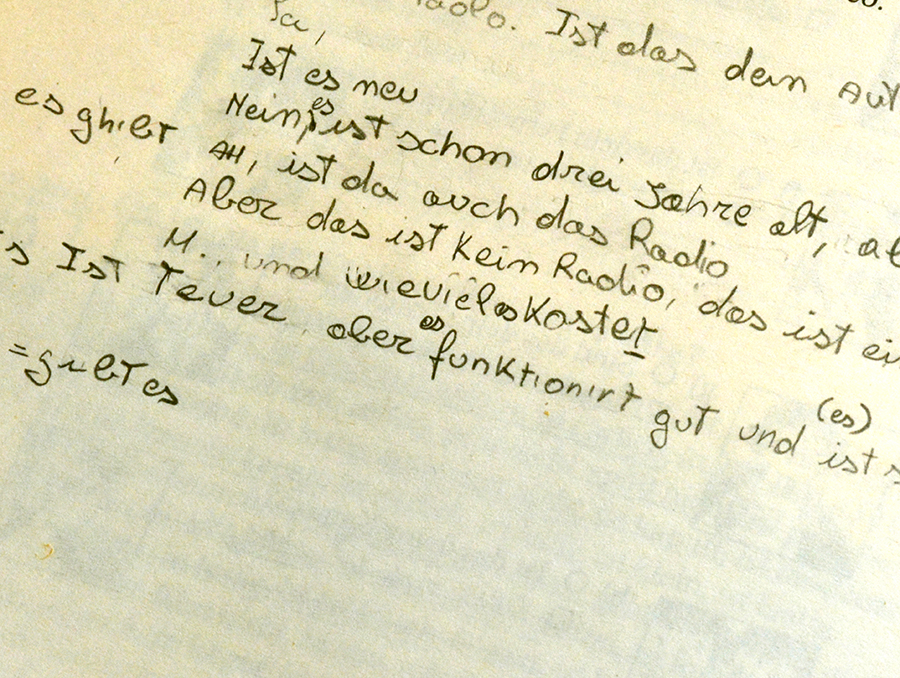 Ist das dein
Ja,
Ist es neu
es ghibt
Nein, es ist schon drei Jahre alt,
AH, ist da auch das Radio
Aber das ist Kein Radio, das ist
M.. und wieviel es Kostet
Ist Teuer, aber es funktionirt gut und (es) ist
= gibt es